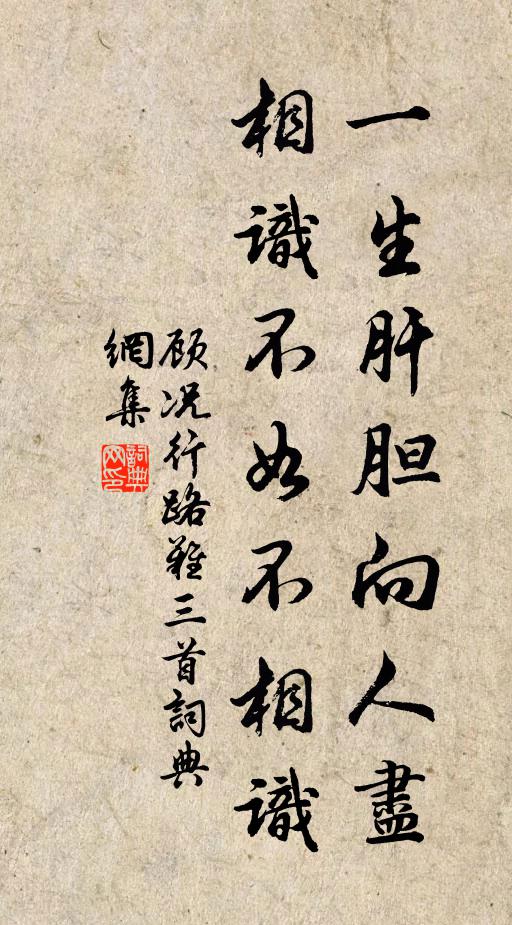 一生肝胆向人盡
相識不如不相識
顾况行路難三首詞典
網集
詞典
网印